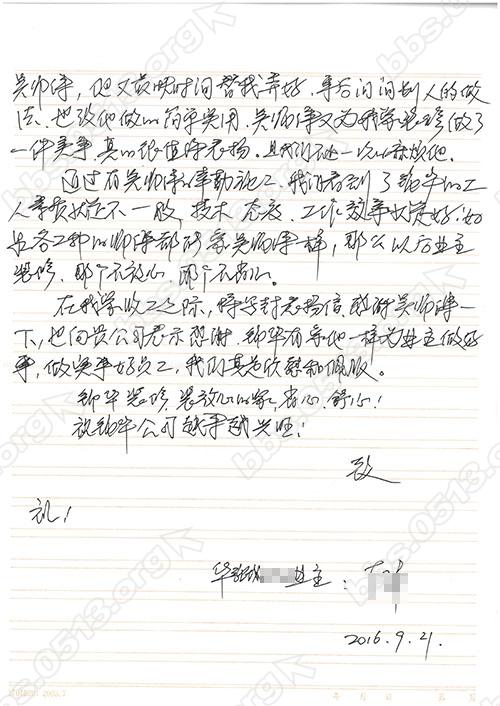 吴师傅,他又最快时间替我弄好,事后问问别人的做
法,也说他做的简单实用,吴师傅又为我家装修做了
一件美事,真的很值得表扬。
通过看吴师傅的辛勤施工,我们看到了锦华的工
人素质就是不一般,技术、态度、工作效率就是好,如
果各工种的师傅都能象吴师傅一样,那么以后业主
装修,那个不放心,那个不省心。
在我家收工之际,特写封表扬信,感谢吴师傅一
下,也向贵公司表示感谢,锦华有等他一样为业主做好
事,做实事好员工,我们真是欣慰和佩服。
锦华装修,装放心的家,省心、舒心!
祝锦华公司越事越兴旺!
致
礼!
业主:
2016.9.21.
bbs.0513.org
年 月 日 第 页